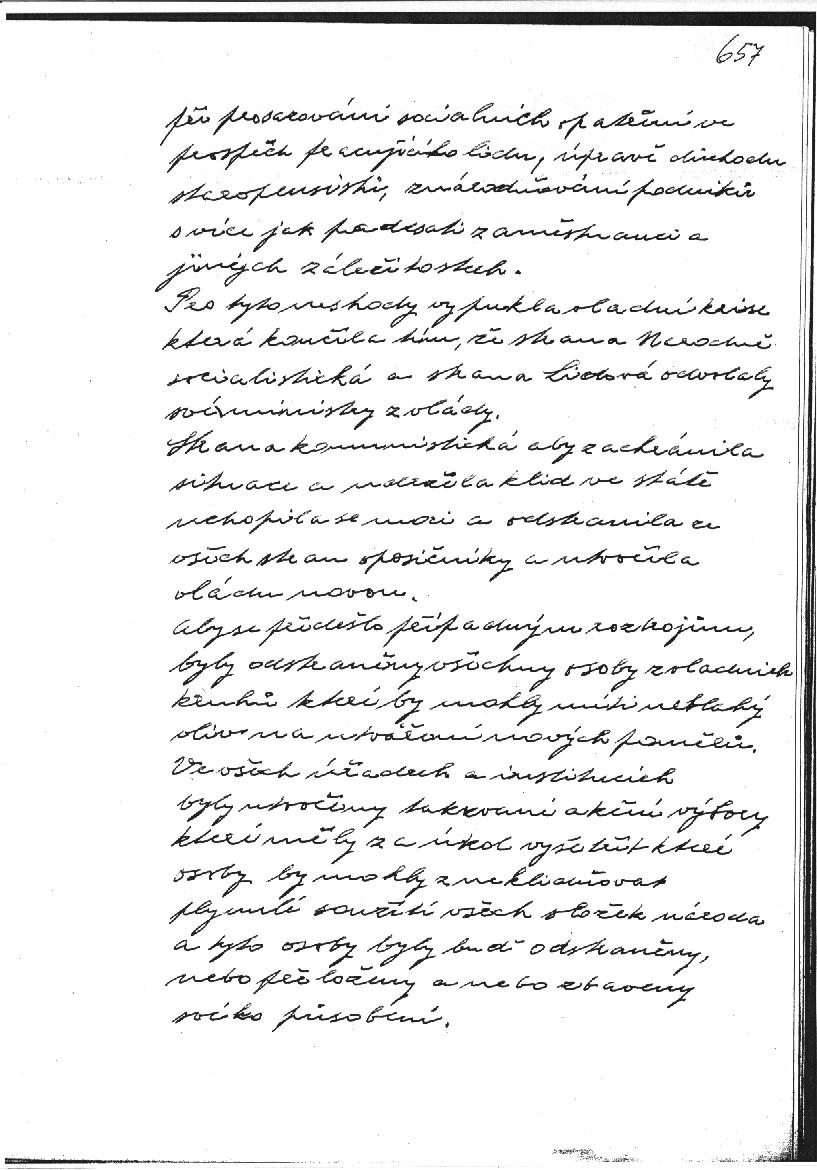 657
při prosazování socialních opatření ve
prospěch pracujícího lidu, úpravě důchodu
staropensistů, znárodňování podniků
s více jak padesáti zaměstnanci a
jiných záležitostech.
Pro tyto neshody vypukla vladní krise
která končila tím, že strana Narodně
socialistická a strana Lidová odvolaly
své ministry z vlády.
Strana kommunistická aby zachránila
situaci a udržela klid ve státě
uchopila se moci a odstranila ze
všech stran oposičníky a utvořila
vládu novou.
Aby se předešlo případným rozkojům,
byly odstraněny všechny osoby z vladních
kruhů kteří by mohly míti neblahý
vliv na utváření nových poměrů.
Ve všech úřadech a institucích
byly utvořeny takzvané akční výbory
které měly za úkol vyšetřit které
osoby by mohly zneklidňovat
plynulé soužití všech složek národa
a tyto osoby byly buď odstraněny,
nebo přeloženy a nebo zbaveny
svého působení.